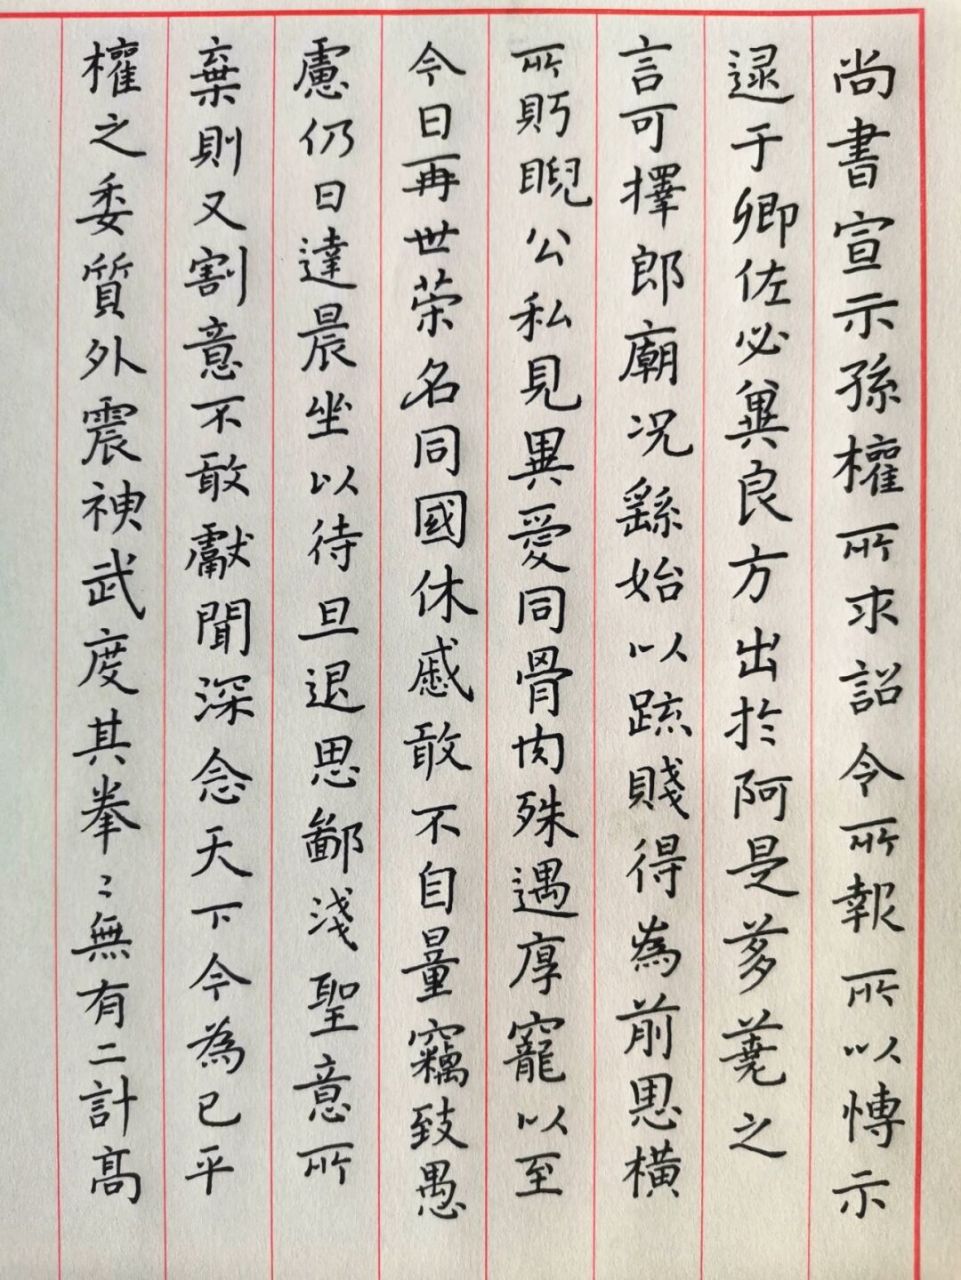 尚書宣示孫權所求詔令所報所以博示
逯于卿佐必冀良方出於阿是芻蕘之
言可擇郎廟況繇始以疏賤得為前恩橫
所眄睨公私見異愛同骨肉殊遇厚寵以至
今日再世荣名同國休慼敢不自量竊致愚
慮仍日達晨坐以待旦退思鄙淺聖意所
棄則又割意不敢獻聞深念天下今為已平
權之委質外震神武度其拳〻無有二計高